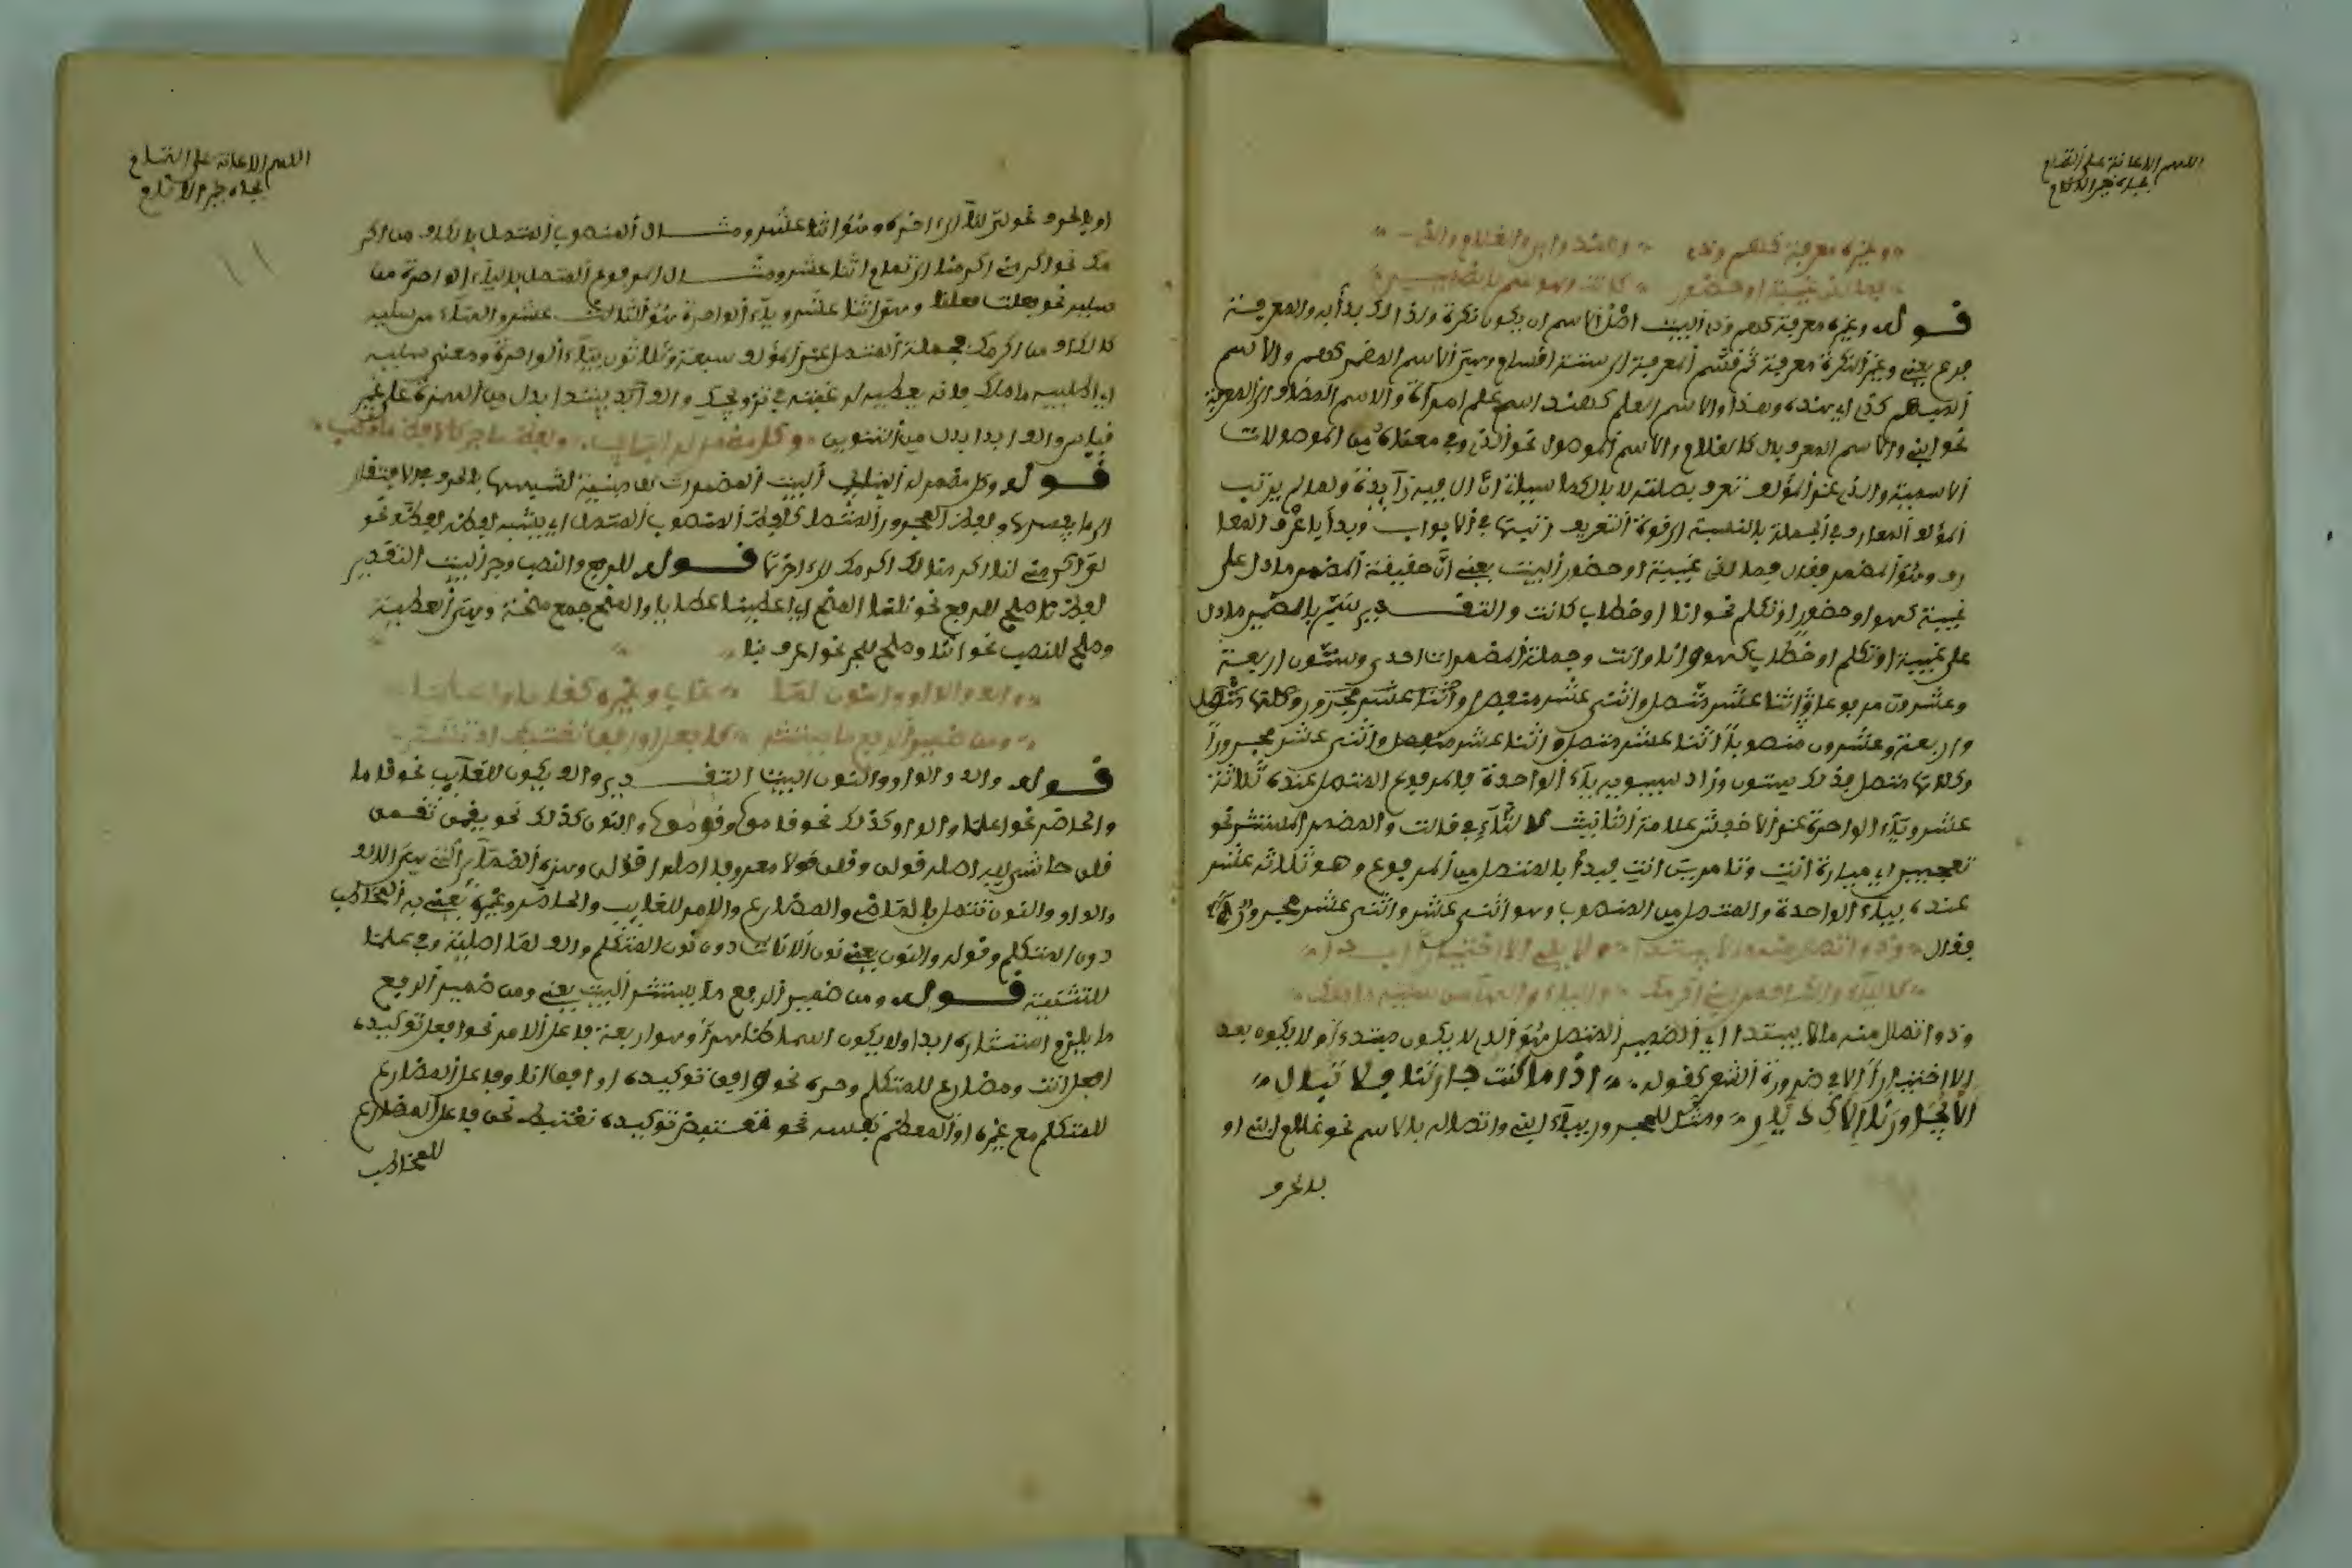 اللهم الاعانة على التمام
بجاه خير الانام
وغيره معرفة كهم وذي وهند وابني والغلام والذي
فما لذي غيبة او حضور كانت وهو سم بالضمير
قوله وغيره معرفة كهم وذي البيت اصل الاسم ان يكون نكرة ولذالك بدأ به والمعرفة
فرع يعني وغير النكرة معرفة ثم قسم المعرفة الى ستة اقسام وهي الاسم المضمر كهم والاسم
المبهم كذي اي هذه وهذا والاسم العلم كهند اسم علم امرأة والاسم المضاف الى المعرفة
نحو ابني والاسم المعرف بال كالغلام والاسم الموصول نحو الذي وفي معناه من الموصولات
الاسمية والذي عند المؤلف تعرف بصلته لا بال كما سيأتي ان ال فيه زآيدة ولما لم يرتب
المؤلف المعارف في الجملة بالنسبة الى قوة التعريف رتبها في الابواب وبدأ باعرف المعا
رف وهو المضمر فقال فما لذي غيبة او حضور البيت يعني ان حقيقة المضمر ما دل على
غيبة كهو او حضور او تكلم نحو انا او خطاب كانت والتقـدير سم بالضمير ما دل
على غيبة او تكلم او خطاب كهو وانا وانت وجملة المضمرات احدى وستون اربعة
وعشرون مرفوعا اثنا عشر متصل واثنى عشر منفصل واثنا عشر مجرور وكلها متصل
واربعة وعشرون منصوبا اثنا عشر متصل واثنا عشر منفصل واثنى عشر مجرورا
وكلها متصل فذلك ستون وزاد سيبويه يآء الواحدة فالمرفوع المتصل عنده ثلاثة
عشر ويآء الواحدة عند الاخفش علامة التانيث كالتآء في قالت والمضمر المستتر نحو
عنده بيآء الواحدة والمتصل من المنصوب وهو اثنى عشر واثنى عشر مجرورا
فقال وذو اتصال منه ما لا يبتدا ولا يلي الا اختيارا ابدا
كاليآء والكاف من ابني اكرمك واليآء والهآ من سليه ما ملك
وذو اتصال منه ما لا يبتدا اي الضمير المتصل هو الذي لا يكون مبتدءا ولا يكون بعد
الا اختيارا الا في ضرورة الشعر كقوله اذا ما كنت جارتنا فلا نبال
الا يجاورنا الاك ديار ومثل للمجرور بيآء ابني واتصاله بالاسم نحو غلامي ابني او
بالحرف
اللهم الاعانة على التمام
بجاه خير الانام
او بالحرف نحو لي لنا الى اخره وهو اثنا عشر ومثـال المنصوب المتصل بالكاف من اكر
مك نحو اكرمني اكرمنا الى تمام اثنا عشر ومثـال المرفوع المتصل باليآء الواحدة من
سليه نحو فعلت فعلنا وهو اثنا عشر ويآء الواحدة هو الثالث عشر والهآء من سليه
كالكاف من اكرمك فجملة المتصل عند المؤلف سبعة وثلاثون بيآء الواحدة ومعنى سليه
اي اطلبيه ما ملك فانه يعطيه لرغبته في تزويجك والف ابد يبتدا بدل من الهمزة على غير
قياس والف ابدا بدل من التنوين وكل مضمر له البنا يجب ولفظ ما جر كلفظ ما نصب
قوله وكل مضمر له البنا يجب البيت المضمرات كلها مبنية لشبهها بالحرف في الافتقار
الى ما يفسرها ولفظ المجرور المتصل كلفظ المنصوب المتصل اي يشبه لفظه لفظه نحو
لي اكرمني لنا اكرمنا لك اكرمك الى اخرها قوله للرفع والنصب وجر البيت التقدير
لفظ نا صلح للرفع نحو نلنا المنح اي اعطينا عطايا والمنح جمع منحة وهي العطية
وصلح للنصب نحو اننا وصلح للجر نحو اعرف بنا
والف والواو والنون لما غاب وغيره كقاما واعلما
ومن ضمير الرفع ما يستتر كافعل اوافق نغتبط اذ تشكر
قوله والف والواو والنون البيت التقـدير والف يكون للغآيب نحو قاما
والحاضر نحو اعلما والواو كذلك نحو قاموا وقوموا والنون كذلك نحو يقمن تقمن
قلن حاش لله اصله قولن وقلن قولا معروفا اصله اقولن وهذه الضمآئر التي هي الالف
والواو والنون تتصل بالماضي والمضارع والامر للغآيب والحاضر وغيره يعني به المخاطب
دون المتكلم وقوله والنون يعني نون الاناث دون نون المتكلم والف لما اصلية وفي علما
للتثنية قوله ومن ضمير الرفع ما يستتر البيت يعني ومن ضمير الرفع
ما يلزم استتاره ابدا ولا يكون اسما ظاهرا وهو اربعة فاعل الامر نحو افعل توكيده
افعل انت ومضارع للمتكلم وحده نحو اوافق توكيده اوافق انا وفاعل المضارع
للمتكلم مع غيره او المعظم نفسه نحو نغتبط توكيده نغتبط نحن وفاعل المضارع
للمخاطب